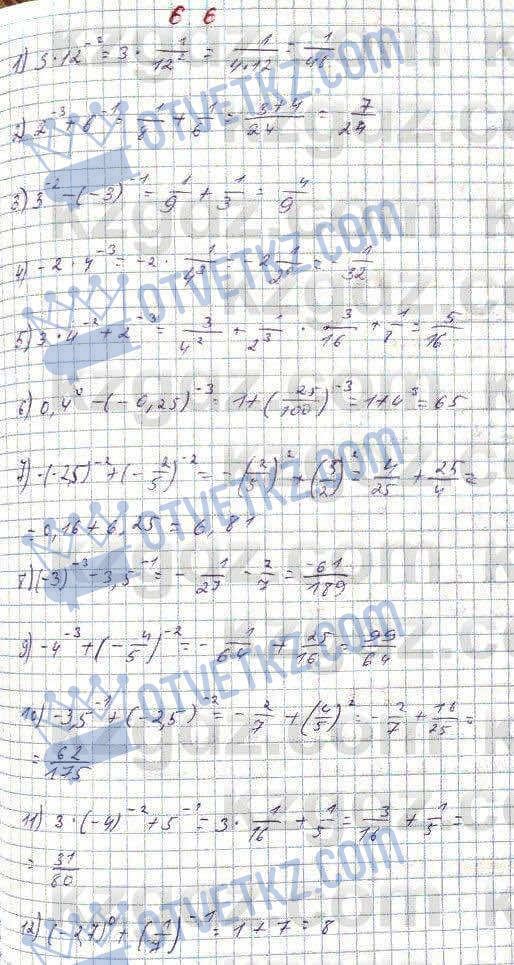 6 6
1) 3·12⁻² = 3 · 1/12² = 1/4·12 = 1/48
2) 2⁻³ + 6⁻¹ = 1/8 + 1/6 = 3+4/24 = 7/24
3) 3⁻² - (-3)⁻¹ = 1/9 + 1/3 = 4/9
4) -2 · 4⁻³ = -2 · 1/4³ = -2 1/2⁶ = -1/32
5) 3·4⁻² + 2⁻³ = 3/4² + 1/2³ · 3/16 + 1/8 = 5/16
6) 0,4⁰ - (-0,25)⁻³ = 1 + (25/100)⁻³ = 1+4³ = 65
7) -(-2,5)⁻² + (-2/5)⁻² = -(2/5)² + (5/2)² = 4/25 + 25/4 =
= 0,16 + 6,25 = 6,81
7) (-3)⁻³ - 3,5⁻¹ = -1/27 - 2/7 = -61/189
9) -4⁻³ + (-4/5)⁻² = -1/64 + 25/16 = 99/64
10) -3,5⁻¹ + (-2,5)⁻² = -2/7 + (4/5)² = -2/7 + 16/25 =
= 62/175
11) 3·(-4)⁻² + 5⁻¹ = 3· 1/16 + 1/5 = 3/16 + 1/5 =
= 31/80
12) (-27)⁰ + (1/7)⁻¹ = 1+7 = 8
OTVETKZ.COM
kzgdz.com